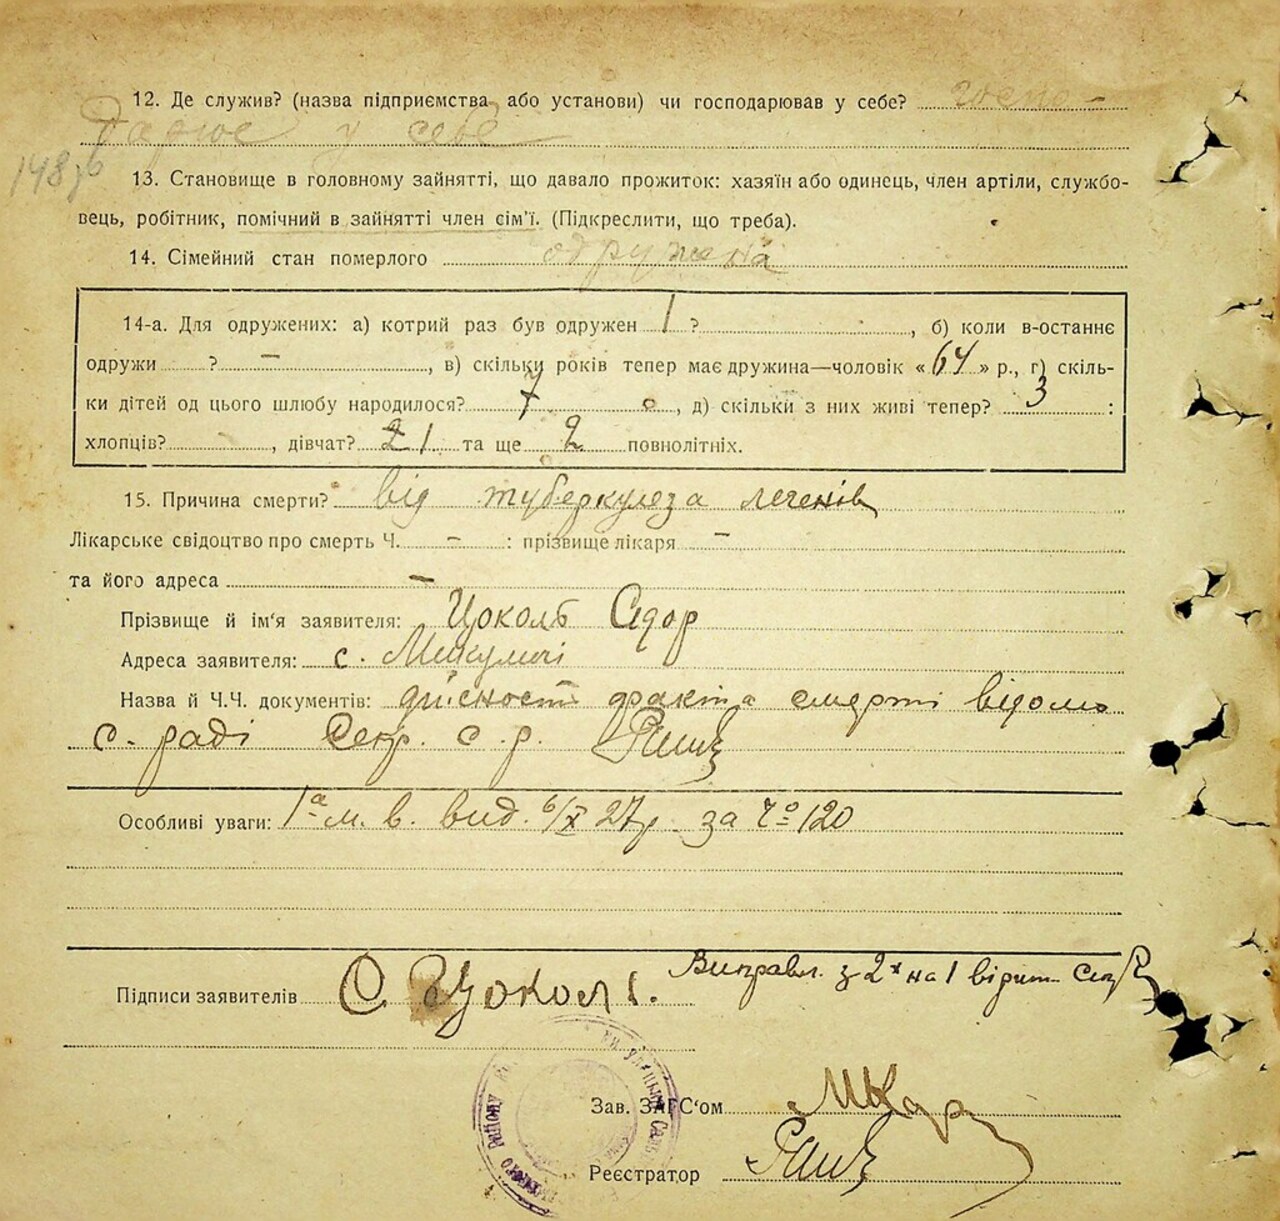 12. Де служив? (назва підприємства або установи) чи господарював у себе? госпо-
дарює у себе
13. Становище в головному зайнятті, що давало прожиток: хазяїн або одинець, член артіли, службо-
вець, робітник, помічний в зайнятті член сім'ї. (Підкреслити, що треба).
14. Сімейний стан померлого одружена
14-а. Для одружених: а) котрий раз був одружен 1 ? , б) коли в-останнє
одружи ? – , в) скільки років тепер має дружина—чоловік « 64 » р., г) скіль-
ки дітей од цього шлюбу народилося? 7 , д) скільки з них живі тепер? 3 :
хлопців? , дівчат? 2 1 та ще 2 повнолітніх.
15. Причина смерти? від туберкулеза легенів
Лікарське свідоцтво про смерть Ч. – : прізвище лікаря –
та його адреса –
Прізвище й ім'я заявителя: Цоколь Сидор
Адреса заявителя: с. Микуличі
Назва й Ч.Ч. документів: дійсность факта смерті відомо
с. раді Секр. с. р.
Особливі уваги: 1а м. в. вид. 6/X 27р за Чо 120
Підписи заявителів С. Цоколь
Виправл. з 2х на 1 вірит. Секр
Зав. ЗАГС'ом
Реєстратор